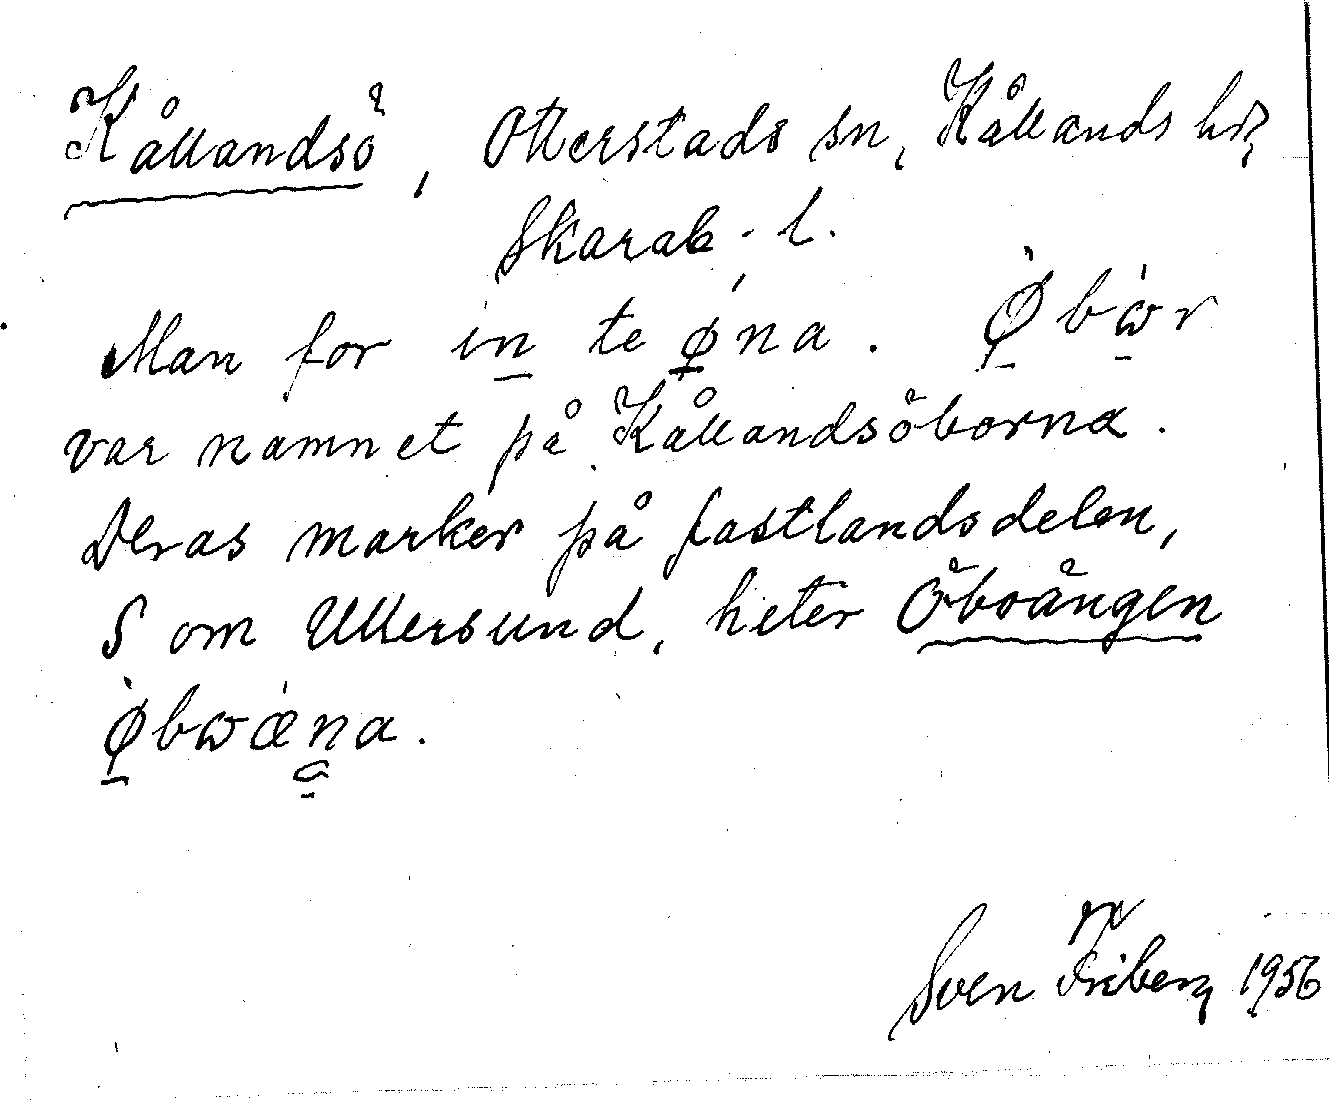 Kållandsö, Otterstads sn, Kållands hd,
Skarab. l.
Man for in te øna. Øbωr
var namnet på Kållandsöborna.
Deras marker på fastlandsdelen,
S om Ullersund, heter Öboängen
øbωæna.
Sven Friberg 1956